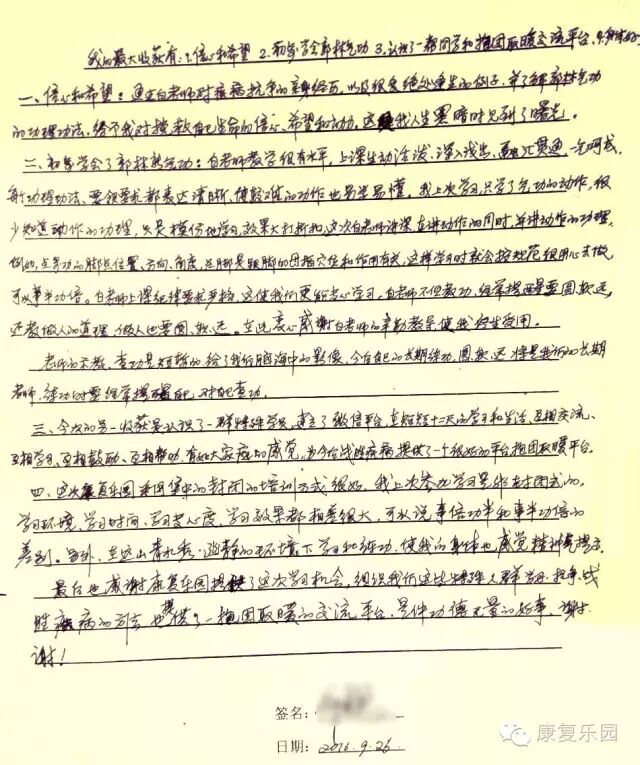 我的最大收获有：1.信心和希望 2.初步学会郭林气功 3.认识了一帮同学和抱团取暖交流平台.4.
一、信心和希望：通过白老师对癌病抗争的亲身经历，以及很多绝处逢生的例子，并了解郭林气功
的功理功法，给予我对拯救自己生命的信心、希望和动力，这是我人生黑暗时见到了曙光。
二、初步学会了郭林新气功：白老师教学很有水平，上课生动活泼、深入浅出、融汇贯通、一气呵成，
每个功理功法、要领要求都表达清晰，使较难的动作也易学易懂。我上次学习，只学了气功的动作，很
少知道动作的功理，只是模仿地学习，效果大打折扣，这次白老师讲课，在讲动作的同时，并讲动作的功理，
例如，点步功的脚点位置、方向、角度，点脚是跟脚的母指穴位和作用有关，这样学习时就会按规范很用心去做，
可以事半功倍。白老师上课纪律要求严格，这使我们更能专心学习，白老师不但教功，经常提醒要圆、软、远，
还教做人的道理，做人也要圆、软、远。在此衷心感谢白老师的辛勤教导，使我终生受用。
老师的示教、查功是短暂的，给了我们脑海中的影像，今后自己的长期练功，圆、软、远将是我们的长期
老师，练功时要经常提醒自己，对自己查功。
三、今次的另一收获是认识了一群特殊学员，建立了微信平台，在短短十二天的学习和生活，互相交流、
互相学习、互相鼓励、互相帮助，有如大家庭的感觉，为今后战胜疾病提供了一个很好的平台，抱团取暖平台。
四、这次康复乐园采用集中的封闭的培训方式很好，我上次参加学习是非封闭式的，
学习环境、学习时间、学习专心度、学习效果都相差很大，可以说事倍功半和事半功倍的
差别。另外，在这山青水秀、幽静的环境下学习和练功，使我的身体也感觉精神
最后也感谢康复乐园提供了这次学习机会，组织我们这些特殊人群学习抗争战
胜癌病的同志，也提供了一抱团取暖的交流平台，是件功德无量的好事，谢
谢！
签名：
日期：2016.9.26.
康复乐园